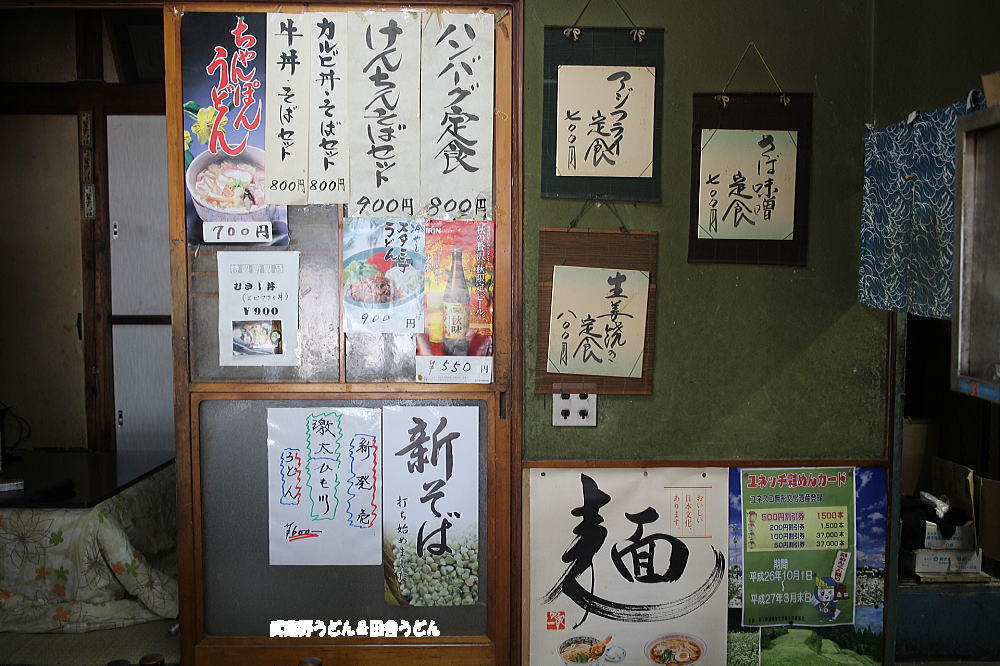 ちゃんぽん
うどん
700円
牛丼 そばセット
800円
カルビ丼・そばセット
800円
けんちんそばセット
900円
ハンバーグ定食
800円
むさし丼
(エビフライ丼)
¥900
スタミナ
うどん
900円
秋の贅沢、秋限定ビール。
秋味
¥550円
新発売
激太ひも川
うどん
¥600
新そば
打ち始めました
武蔵野うどん&田舎うどん
アジフライ
定食
七〇〇円
さば味噌
定食
七〇〇円
生姜焼き
定食
八〇〇円
おいしい
日本文化、
あります。
麺
ユネッチ麺めんカード
ユネスコ無形文化遺産登録
500円割引券 1500本
200円割引券 1,500本
100円割引券 37,000本
50円割引券 37,000本
期間
平成26年10月1日
〜
平成27年3月末日